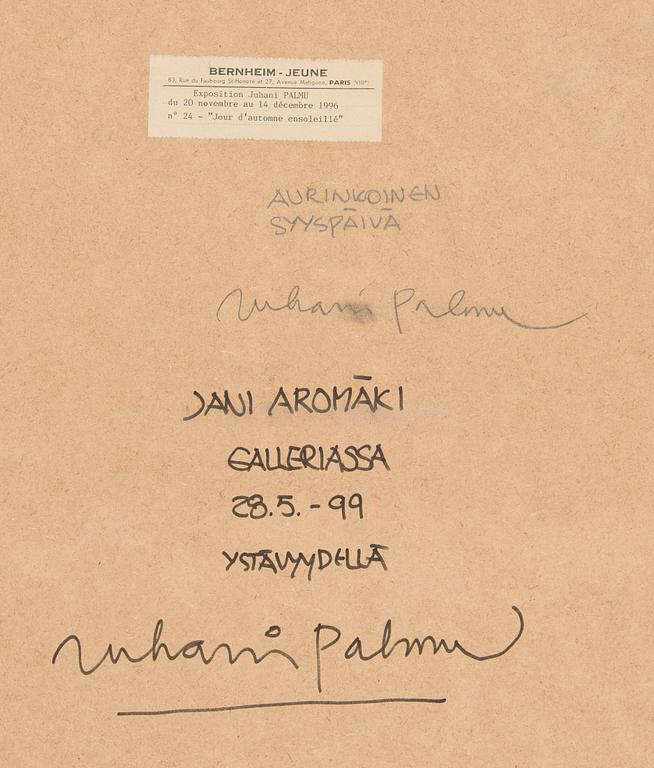 BERNHEIM - JEUNE
83, Rue du Faubourg St-Honoré et 27, Avenue Matignon, PARIS (VIIIᵉ)
Exposition Juhani PALMU
du 20 novembre au 14 décembre 1996
n° 24 - "Jour d'automne ensoleillé"
AURINKOINEN
SYYSPÄIVÄ
Juhani Palmu
JANI AROMÄKI
GALLERIASSA
28.5.-99
YSTÄVYYDELLÄ
Juhani Palmu